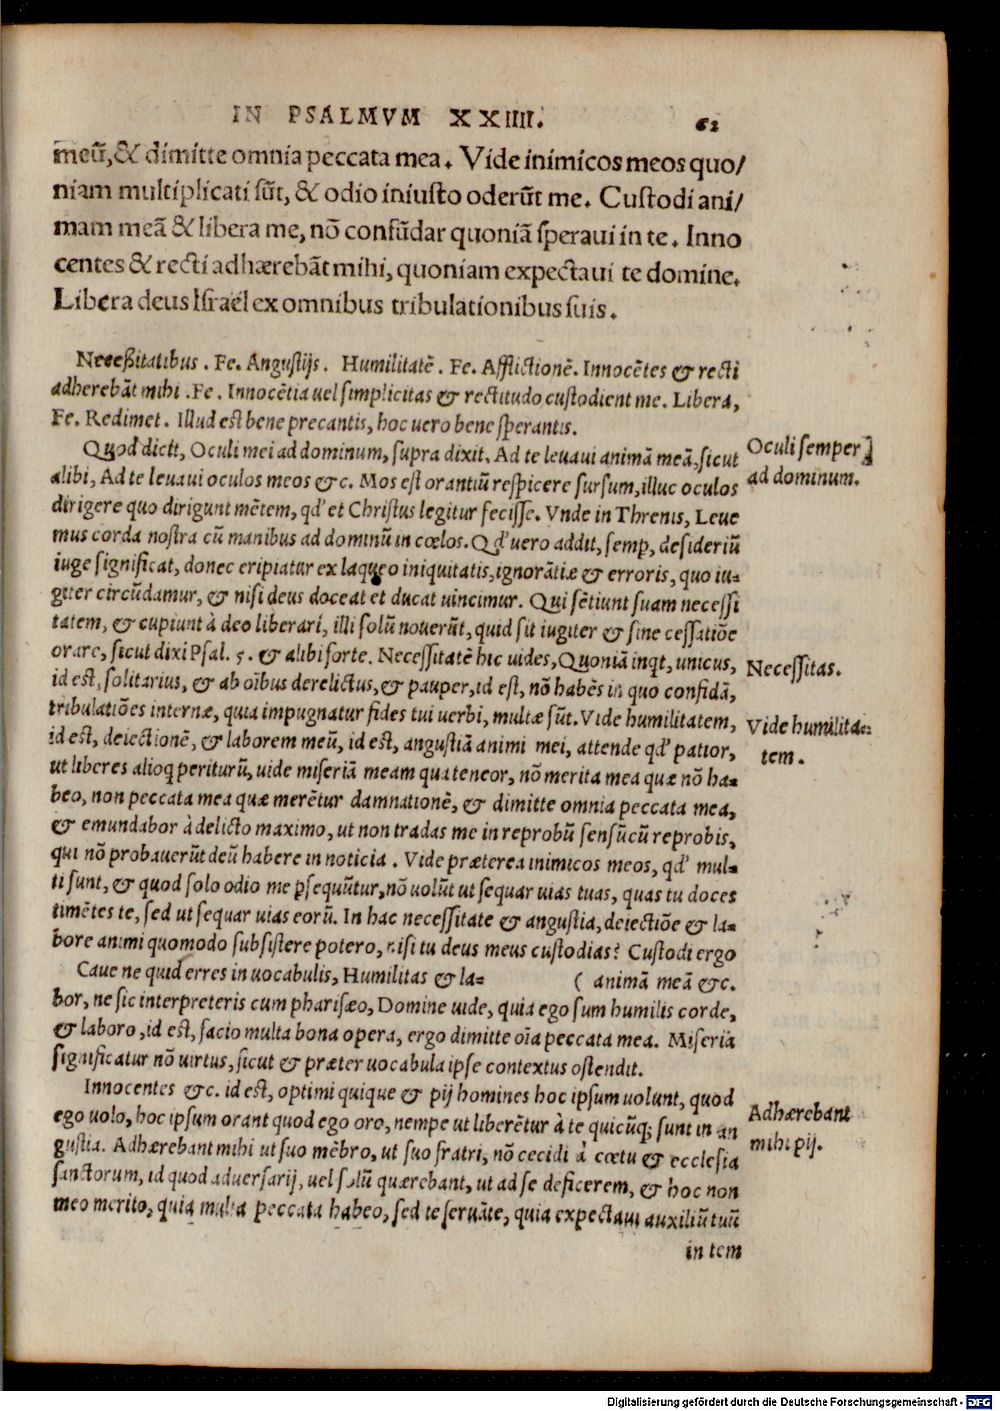 IN PSALMVM XXIIII. 62
meū, & dimitte omnia peccata mea. Vide inimicos meos quo/
niam multiplicati sūt, & odio iniusto oderūt me. Custodi ani/
mam meā & libera me, nō confūdar quoniā speraui in te. Inno
centes & recti adhærebāt mihi, quoniam expectaui te domine.
Libera deus Israël ex omnibus tribulationibus suis.
Neceßitatibus. Fe. Angustijs. Humilitatē. Fe. Afflictionē. Innocētes & recti
adherebāt mihi. Fe. Innocētia uel simplicitas & rectitudo custodient me. Libera,
Fe. Redimet. Illud est bene precantis, hoc uero bene sperantis.
Quod dicit, Oculi mei ad dominum, supra dixit. Ad te leuaui animā meā, sicut
Oculi semper
alibi, Ad te leuaui oculos meos &c. Mos est orantiū respicere sursum, illuc oculos
ad dominum.
dirigere quo dirigunt mētem, qd' et Christus legitur fecisse. Vnde in Threnis, Leue
mus corda nostra cū manibus ad dominū in cœlos. Qd' uero addit, semp, desideriū
iuge significat, donec eripiatur ex laqueo iniquitatis, ignorātiæ & erroris, quo iu-
giter circūdamur, & nisi deus doceat et ducat uincimur. Qui sētiunt suam necessi
tatem, & cupiunt à deo liberari, illi solū nouerūt, quid sit iugiter & sine cessatiōe
orare, sicut dixi Psal. 5. & alibi forte. Necessitatē hic uides, Quoniā inqt, unicus,
Necessitas.
id est, solitarius, & ab oībus derelictus, & pauper, id est, nō habēs in quo confidā,
tribulatiōes internæ, quia impugnatur fides tui uerbi, multæ sūt. Vide humilitatem,
Vide humilita-
id est, deiectionē, & laborem meū, id est, angustiā animi mei, attende qd' patior,
tem.
ut liberes alioq periturū, uide miseriā meam qua teneor, nō merita mea quæ nō ha-
beo, non peccata mea quæ merētur damnationē, & dimitte omnia peccata mea,
& emundabor à delicto maximo, ut non tradas me in reprobū sensū cū reprobis,
qui nō probauerūt deū habere in noticia. Vide præterea inimicos meos, qd' mul-
ti sunt, & quod solo odio me psequūtur, nō uolūt ut sequar uias tuas, quas tu doces
timētes te, sed ut sequar uias eorū. In hac necessitate & angustia, deiectiōe & la-
bore animi quomodo subsistere potero, nisi tu deus meus custodias? Custodi ergo
Caue ne quid erres in uocabulis, Humilitas & la- ( animā meā &c.
bor, ne sic interpreteris cum pharisæo, Domine uide, quia ego sum humilis corde,
& laboro, id est, facio multa bona opera, ergo dimitte oīa peccata mea. Miseria
significatur nō uirtus, sicut & præter uocabula ipse contextus ostendit.
Innocentes &c. id est, optimi quique & pij homines hoc ipsum uolunt, quod
ego uolo, hoc ipsum orant quod ego oro, nempe ut liberētur à te quicūq; sunt in an
Adhærebant
gustia. Adhærebant mihi ut suo mēbro, ut suo fratri, nō cecidi à cœtu & ecclesia
mihi pij.
sanctorum, id quod aduersarij, uel solū quærebant, ut ad se deficerem, & hoc non
meo merito, quia multa peccata habeo, sed te seruāte, quia expectaui auxiliū tuū
in tem
Digitalisierung gefördert durch die Deutsche Forschungsgemeinschaft - DFG